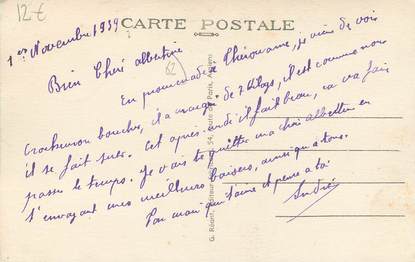 12€
1er Novembre 1939
CARTE POSTALE
Bien Chéré albertine
62
En promenade a Thérouanne, je viens de voir
boucher, il a maigri de 7 Kilogs, il est comme nous
il se fait Cet après-midi il fait beau, ca va fair
passer le temps. Je vais te quitter ma chéri albertine en
t'envoyant mes meilleurs baisers, ainsi qu'a tous.
Ton mari qui t'aime et pense a toi
André